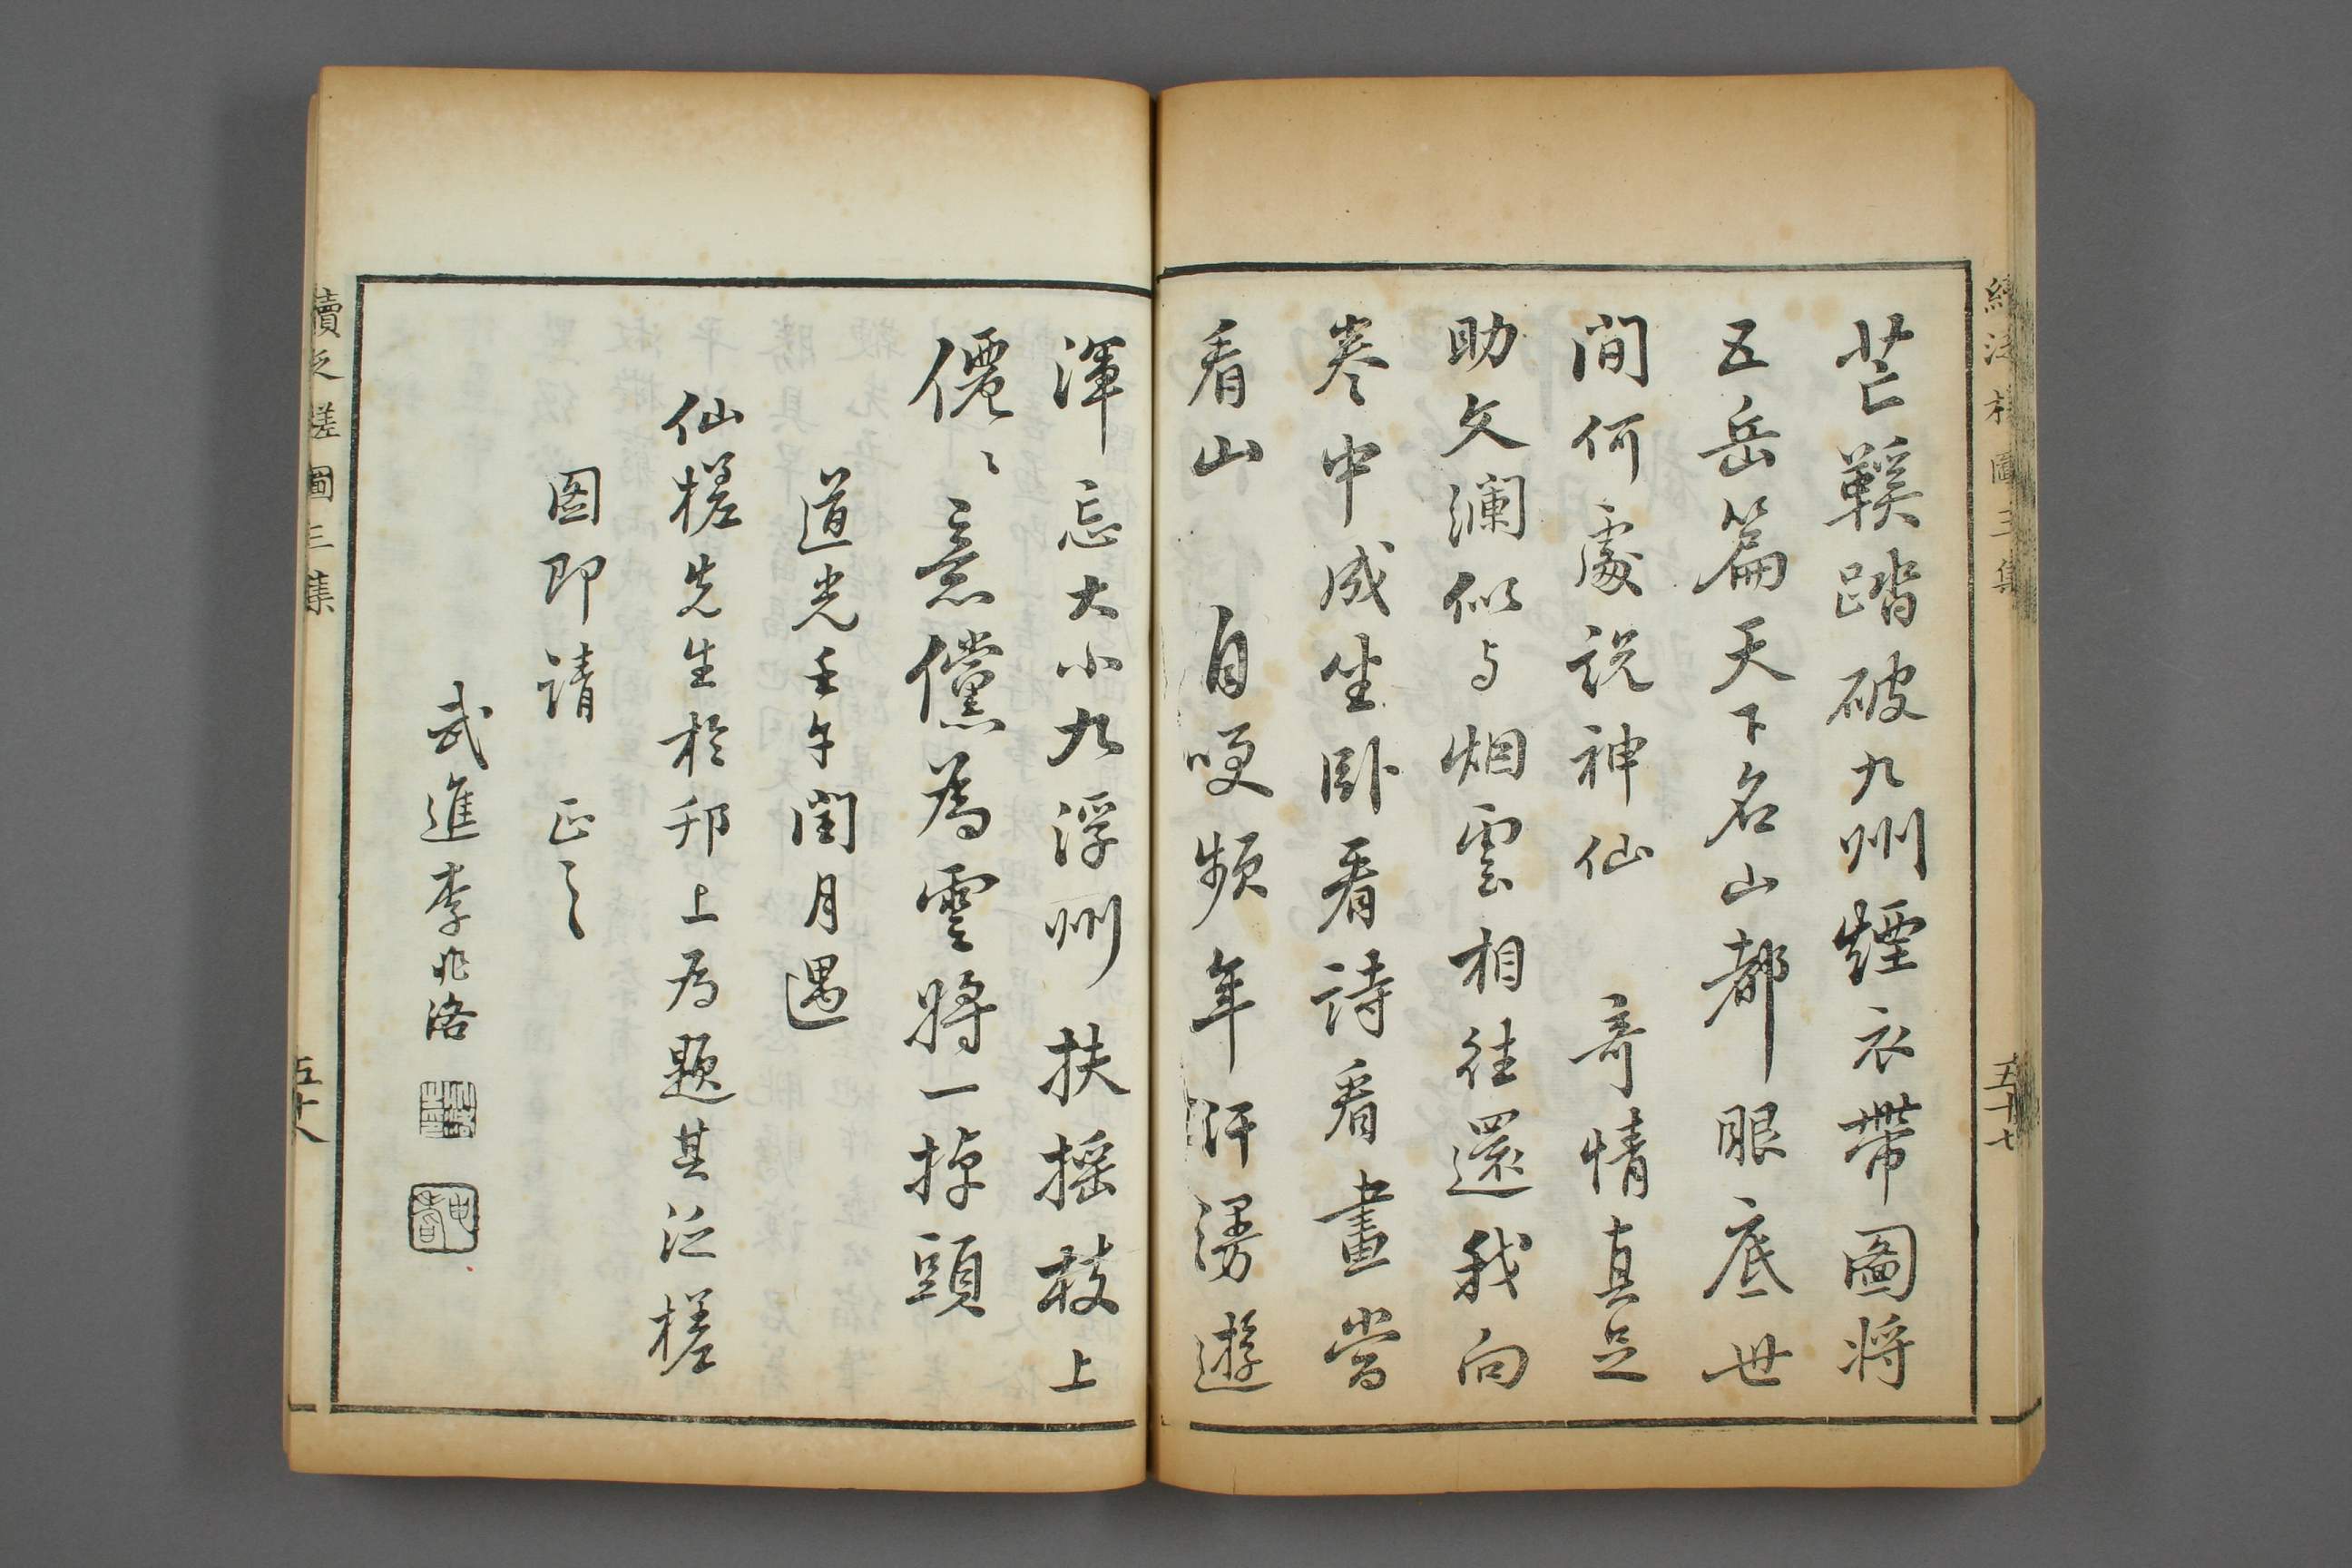 芒鞵踏破九州煙衣帶圖将
五岳篇天下名山都眼底世
間何處說神仙　奇情真足
助文瀾似与烟雲相往還我向
卷中成坐卧看詩看畫當
看山　自哂頻年汗漫遊
渾忘大小九浮州扶摇枝上
僊〻意儻為雲將一掉頭
道光壬午閏月遇
仙槎先生於邗上為題其泛槎
圖即請　正之
武進李兆洛
申耆
續泛槎圖三集
五十七
續泛槎圖三集
五十八